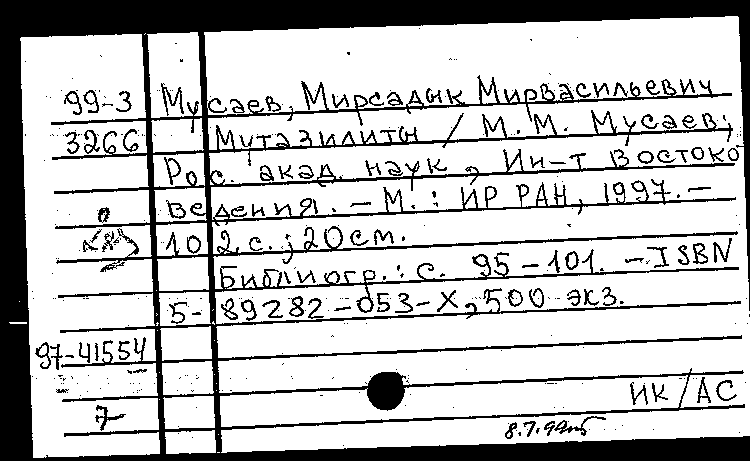 99-3 Мусаев, Мирсадык Мирвасильевич
3266 Мутазилиты / М.М. Мусаев;
Рос. акад. наук, Ин-т востоко
ведения. - М.: ИР РАН, 1997. -
102 с.; 20 см.
Библиогр.: с. 95-101. - ISBN
5-89282-053-X, 500 экз.
97-41554
ИК/АС
7
8.7.99